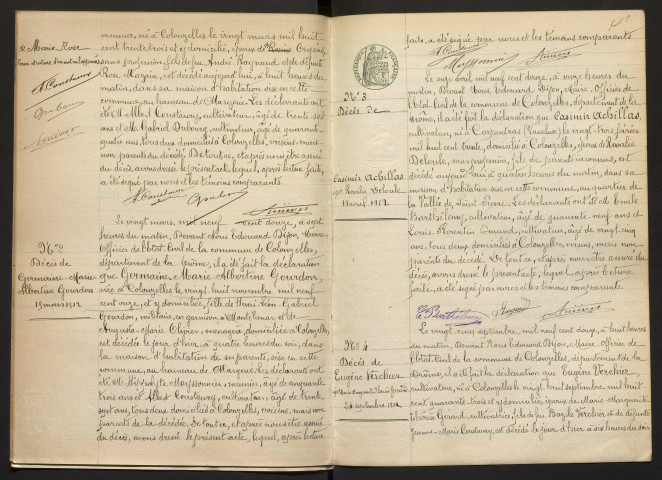 Marie Rose
meunier, né à Colonzelles le vingt mars mil huit
cent trente trois et y domicilié, époux de Crespin,
sans profession, fils de feu André Raymond et de défunte
Rose Margin, est décédé aujourd'hui, à huit heures du
matin, dans sa maison d'habitation sise en cette
commune, au hameau de Margerie. Les déclarants ont
été M. Albert Constaury, cultivateur, âgé de trente
ans et M. Gabriel Dubourg, cultivateur, âgé de quarante
quatre ans, tous deux domiciliés à Colonzelles, voisins, mais
non parents du décédé. De tout ce, et après nous être assuré
du décès, avons dressé le présent acte, lequel, après lecture faite,
a été signé par nous et les témoins comparants.
Nº 2
Décès de
Germaine-Marie
Albertine Gourdon
19 mars 1912
Le vingt mars, mil neuf cent douze, à sept
heures du matin, Devant Nous Edouard Dijon, Maire
Officier de l'Etat Civil de la commune de Colonzelles,
département de la Drôme, il a été fait la déclaration
que Germaine Marie Albertine Gourdon,
née à Colonzelles le vingt huit novembre mil neuf
cent onze, et y domiciliée, fille de Henri Léon Gabriel
Gourdon, militaire, en garnison à Montélimar et de
Augusta Marie Olivier, ménagère, domiciliée à Colonzelles,
est décédée le jour d'hier, à quatre heures du soir, dans
la maison d'habitation de ses parents, sise en cette
commune, au hameau de Margerie. Les déclarants ont
été M. Hippolyte Meyssonnier, maçon, âgé de cinquante
trois ans et Albert Constaury, cultivateur, âgé de trente
sept ans, tous deux domiciliés à Colonzelles, voisins, mais non
parents de la décédée. De tout ce, et après nous être assuré
du décès, avons dressé le présent acte, lequel, après lecture
faite, a été signé par nous et les témoins comparants
Nº 3
Décès de
Casimir Achillas
époux Rosalie Deloule
15 avril 1912
Le seize avril mil neuf cent douze, à onze heures du
matin, Devant Nous Edouard Dijon, Maire, Officier de
l'Etat Civil de la commune de Colonzelles, département de la
Drôme, il a été fait la déclaration que Casimir Achillas,
cultivateur, né à Carpentras (Vaucluse) le vingt trois février
mil huit cent trente, domicilié à Colonzelles, époux de Rosalie
Deloule, sans profession, fils de parents inconnus, est
décédé aujourd'hui à quatre heures du matin, dans sa
maison d'habitation sise en cette commune, au quartier de
la Vallée de Saint Pierre. Les déclarants ont été M. Emile
Barthélemy, cultivateur, âgé de quarante neuf ans et
Louis Florentin Amand, cultivateur, âgé de vingt cinq
ans, tous deux domiciliés à Colonzelles, voisins, mais non
parents du décédé. De tout ce, et après nous être assuré du
décès, avons dressé le présent acte, lequel, après lecture
faite, a été signé par nous et les témoins comparants.
E. Barthélemy
Nº 4
Décès de
Eugène Verchier
24 septembre 1912
Le vingt cinq septembre, mil neuf cent douze, à huit heures
du matin, Devant Nous Edouard Dijon, Maire Officier de
l'Etat Civil de la commune de Colonzelles, département de la
Drôme, il a été fait la déclaration que Eugène Verchier,
cultivateur, né à Colonzelles le vingt huit septembre mil huit
cent quarante trois et y domicilié, époux de Marie Marguerite
Marie Gérard, cultivatrice, fils de feu Bazile Verchier et de défunte
Jeanne-Marie Constaury est décédé le jour d'hier à six heures du soir